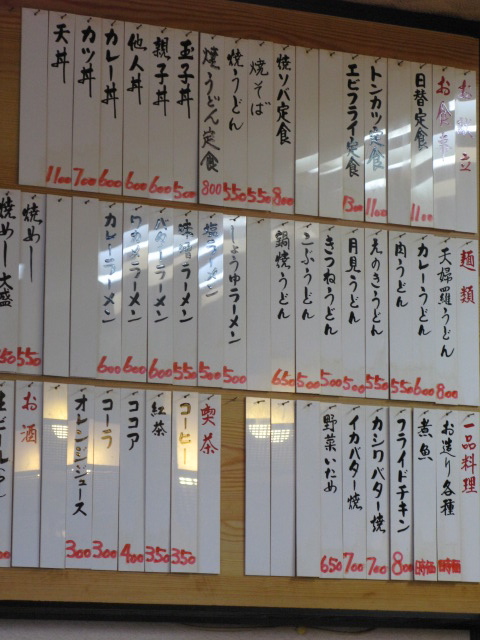 お献立
お食事
日替定食 1100
トンカツ定食 1100
エビフライ定食 1300
焼ソバ定食 800
焼そば 550
焼うどん 550
焼うどん定食 800
玉子丼 500
親子丼 600
他人丼 600
カレー丼 600
カツ丼 700
天丼 1100
麺類
天婦羅うどん 800
カレーうどん 600
肉うどん 550
えのきうどん 550
月見うどん 500
きつねうどん 500
こぶうどん 500
鍋焼うどん 650
しょうゆラーメン 500
塩ラーメン 500
味噌ラーメン 550
バターラーメン 600
ワカメラーメン 600
カレーラーメン 600
焼めし 550
焼めし大盛 650
一品料理
お造り各種 時価
煮魚 時価
フライドチキン 800
カシワバター焼 700
イカバター焼 700
野菜いため 650
喫茶
コーヒー 350
紅茶 350
ココア 400
コーラ 300
オレンジジュース 300
お酒